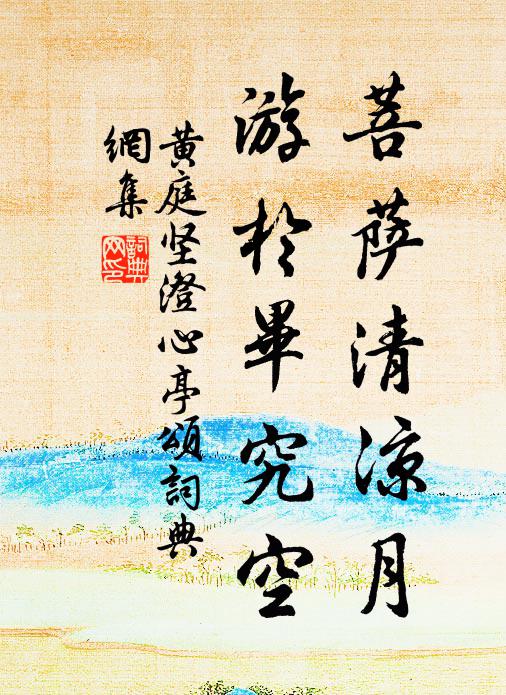 菩萨清凉月
游於畢究空
黄庭坚澄心亭頌詞典
網集
詞典
网印